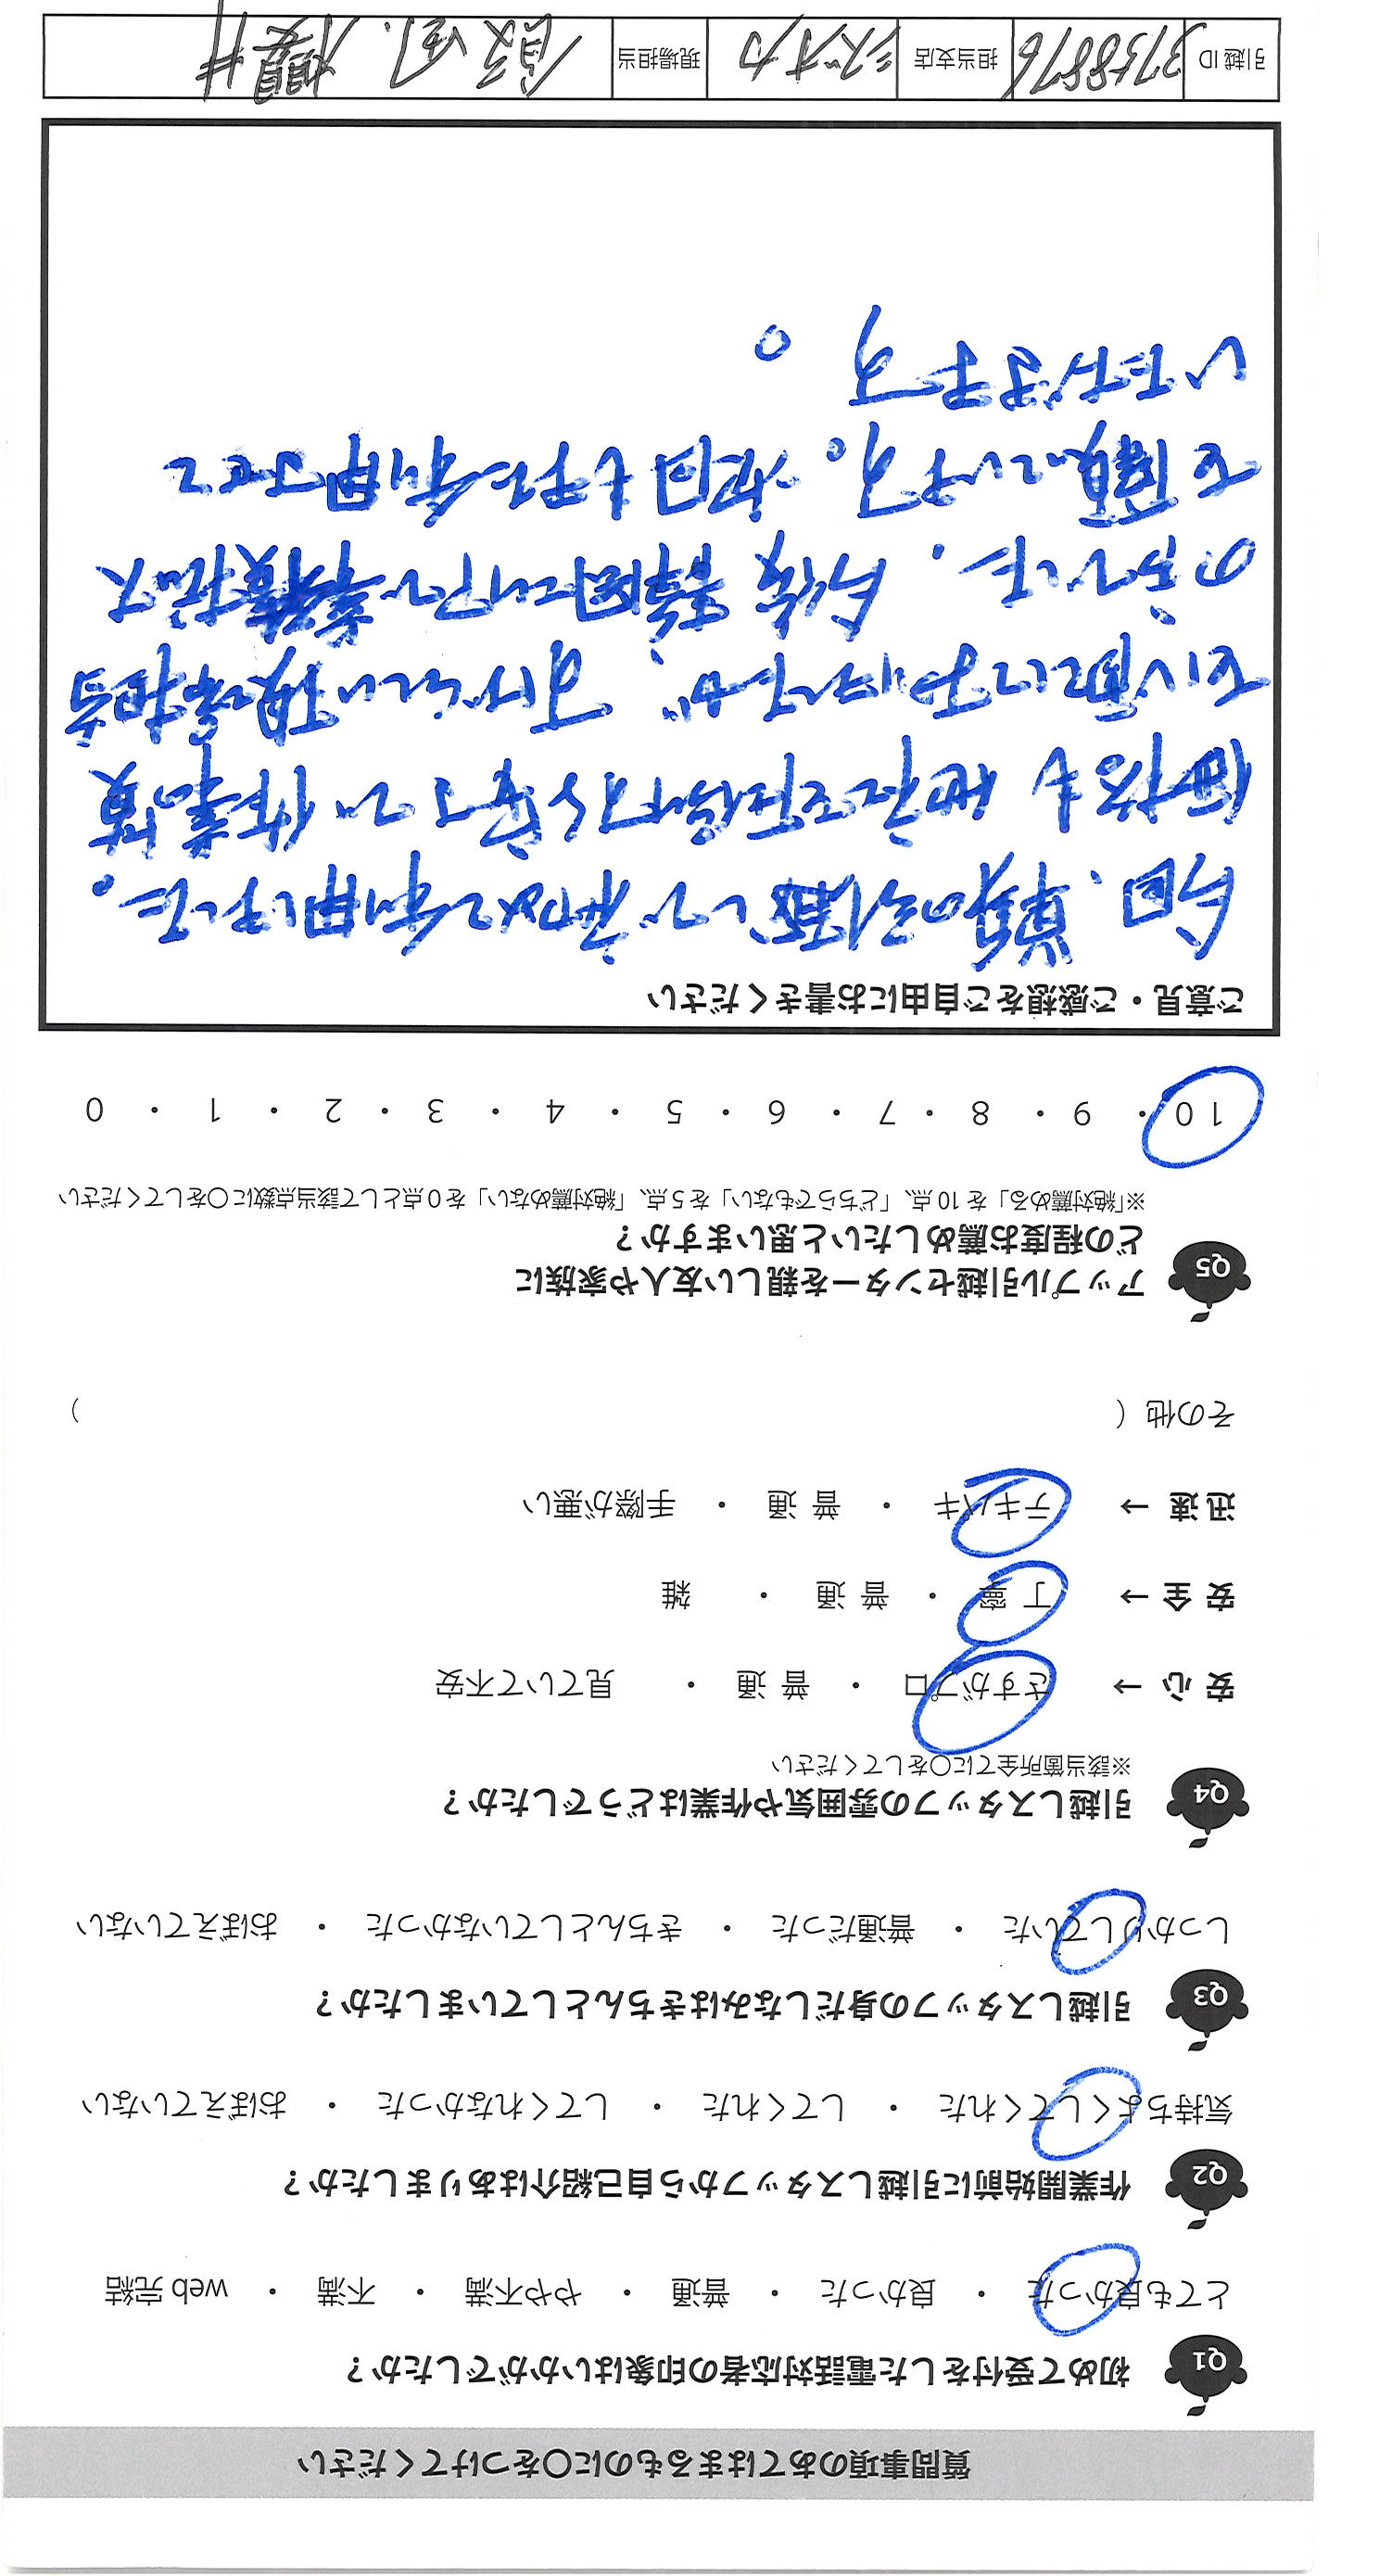 質問事項のあてはまるものに〇をつけてください
Q1 初めて受付をした電話対応者の印象はいかがでしたか？
とても良かった ・ 良かった ・ 普通 ・ やや不満 ・ 不満 ・ web 完結
Q2 作業開始前に引越しスタッフから自己紹介はありましたか？
気持ちよくしてくれた ・ してくれた ・ してくれなかった ・ おぼえていない
Q3 引越しスタッフの身だしなみはきちんとしていましたか？
しっかりしていた ・ 普通だった ・ きちんとしていなかった ・ おぼえていない
Q4 引越しスタッフの雰囲気や作業はどうでしたか？
※該当箇所全てに〇をしてください
安 心 → さすがプロ ・ 普 通 ・ 見ていて不安
安 全 → 丁 寧 ・ 普 通 ・ 雑
迅 速 → テキパキ ・ 普 通 ・ 手際が悪い
その他（ ）
Q5 アップル引越センターを親しい友人や家族に
どの程度お薦めしたいと思いますか？
※「絶対薦める」を 10 点、「どちらでもない」を 5 点、「絶対薦めない」を 0 点として該当点数に〇をしてください
10 ・ 9 ・ 8 ・ 7 ・ 6 ・ 5 ・ 4 ・ 3 ・ 2 ・ 1 ・ 0
ご意見・ご感想をご自由にお書きください
今回、単身の引越しで初めて利用しました。
価格も他社を圧倒する安さで作業員
も心配しておりましたが、すばらしい現場担当
の方でした。今後 静岡エリアで業務拡大
を願っています。次回も是非利用させて
いただきます。
引越 ID 3758876 担当支店 シズオカ 現場担当